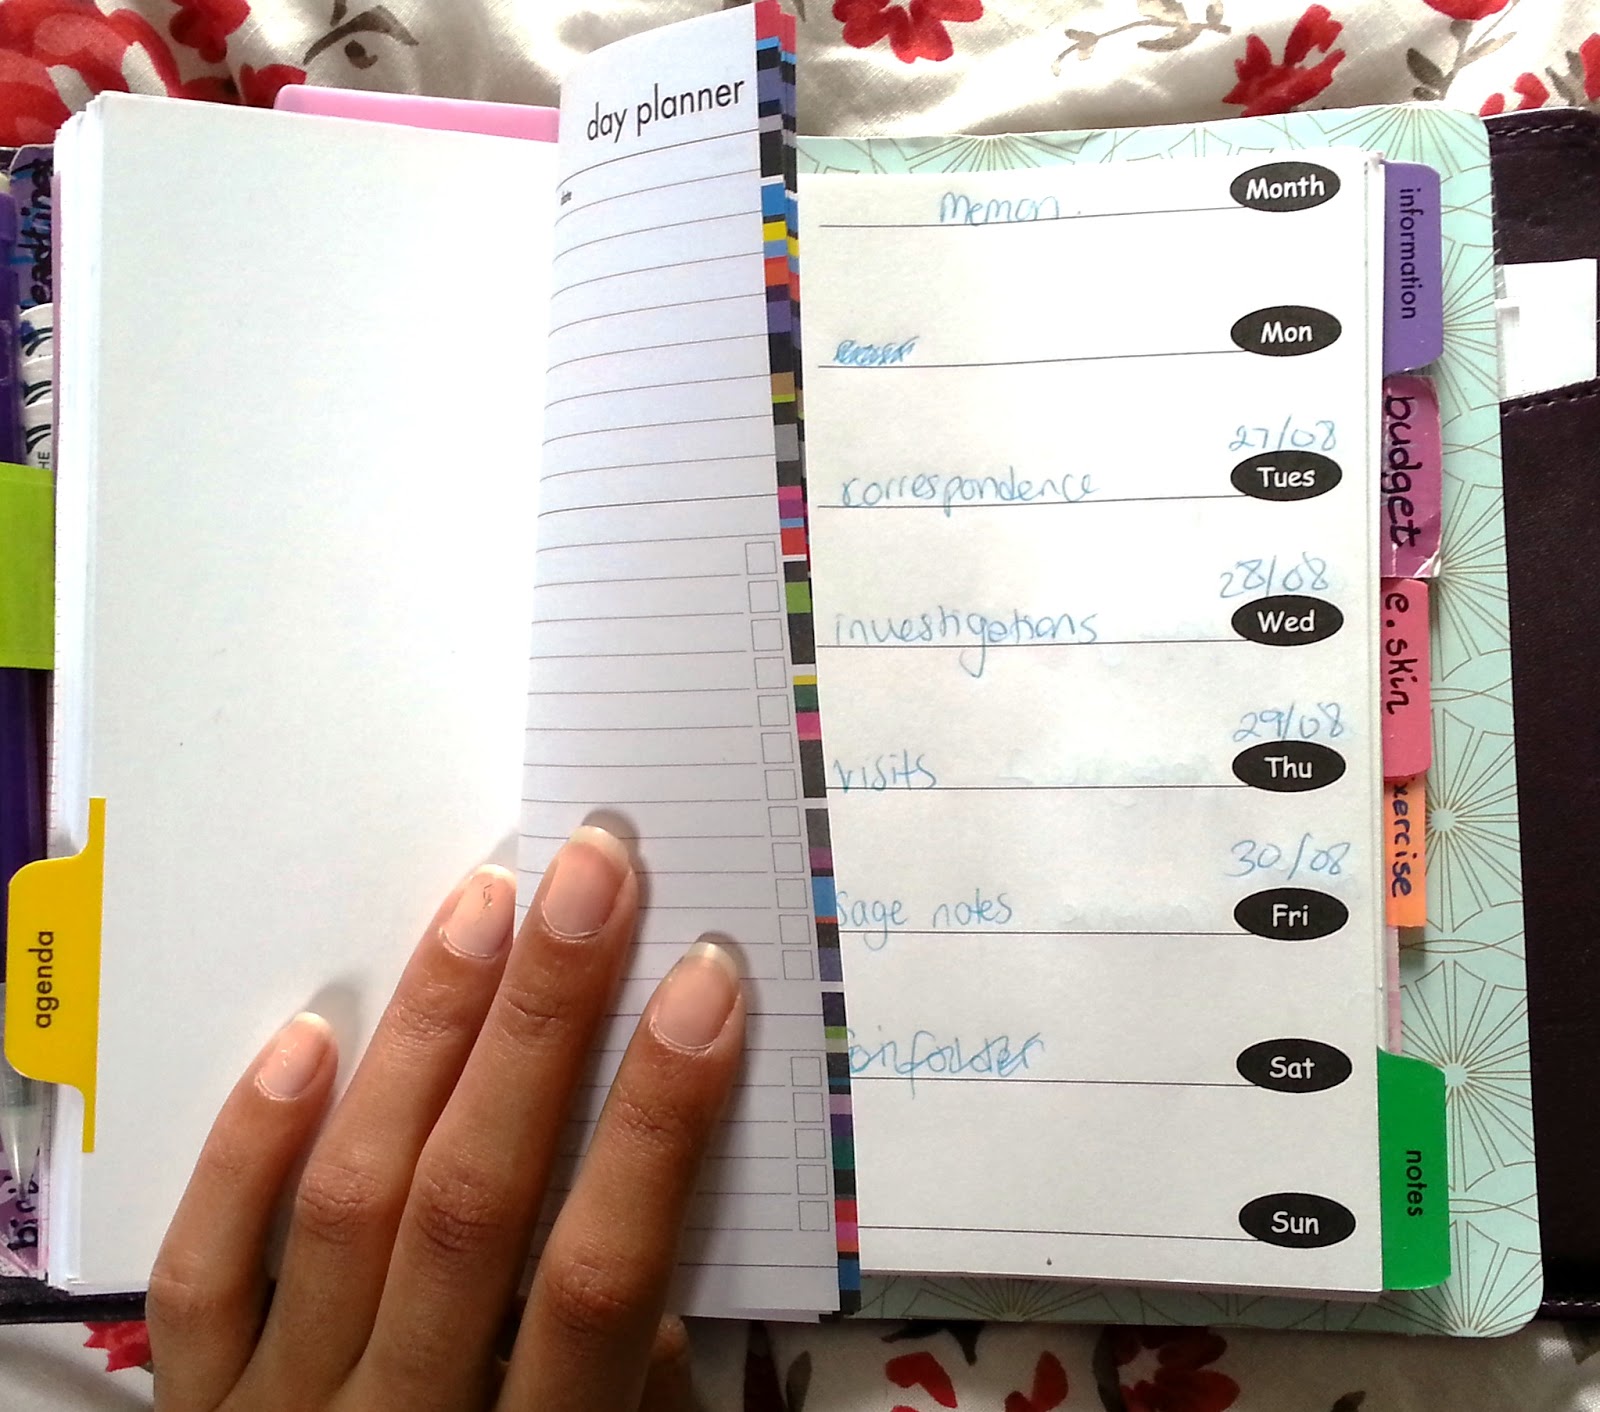 day planner
date
Month
Memon.
Mon
27/08
correspondence Tues
28/08
investigations Wed
29/08
visits Thu
30/08
sage notes Fri
Sat
Sun
information
budget
e.skin
xercise
notes
agenda